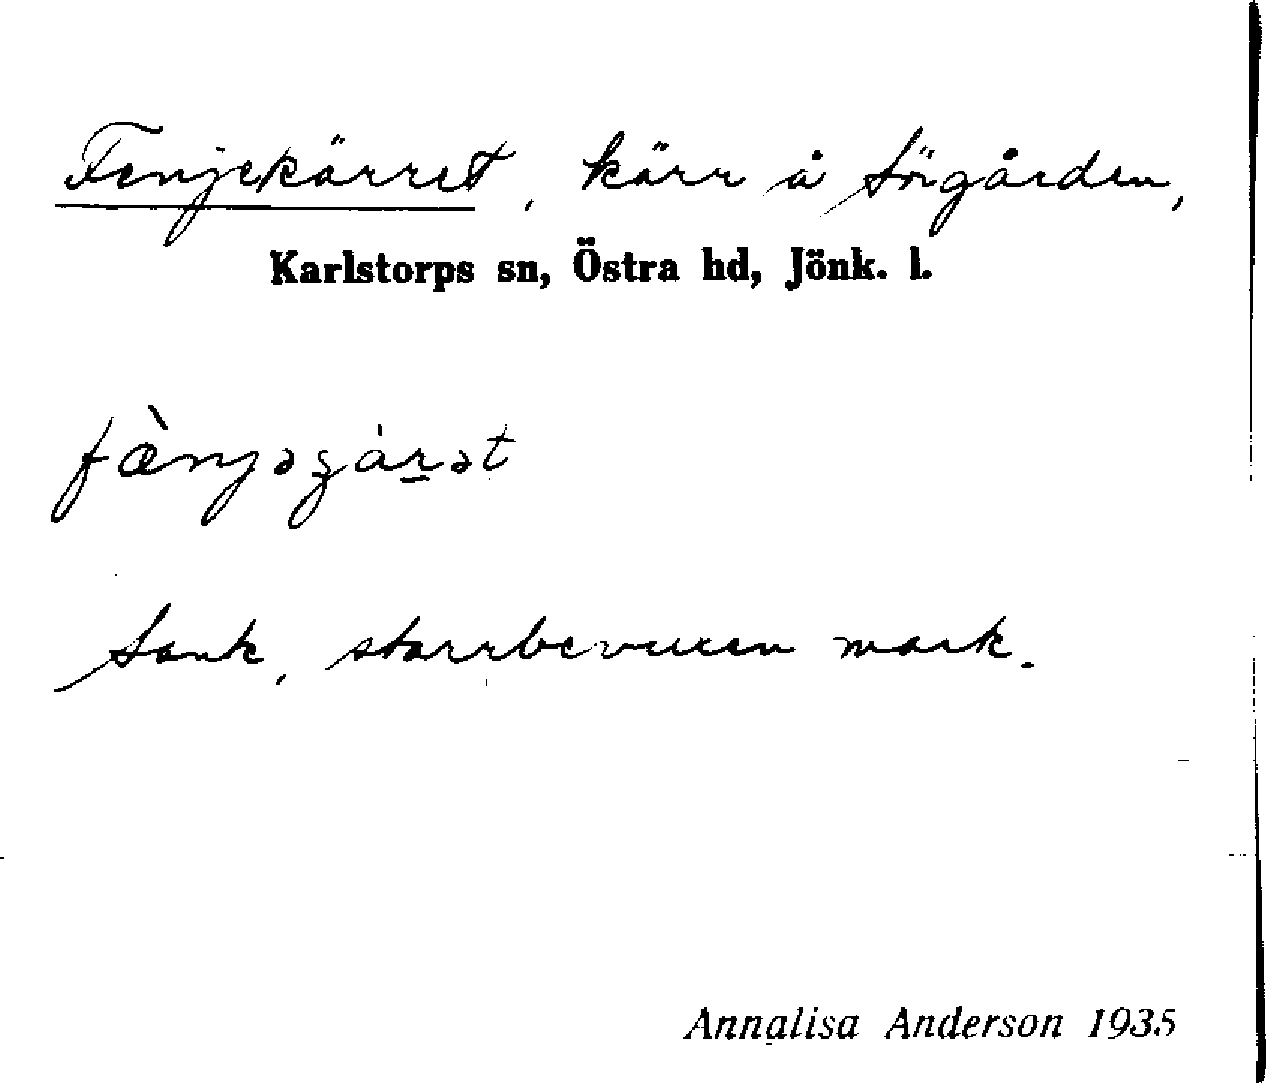 Fenjekärret, kärr å Sörgården,
Karlstorps sn, Östra hd, Jönk. l.
fæ̀njəʒár̲ət
Sank, starrbevuxen mark.
Annalisa Anderson 1935